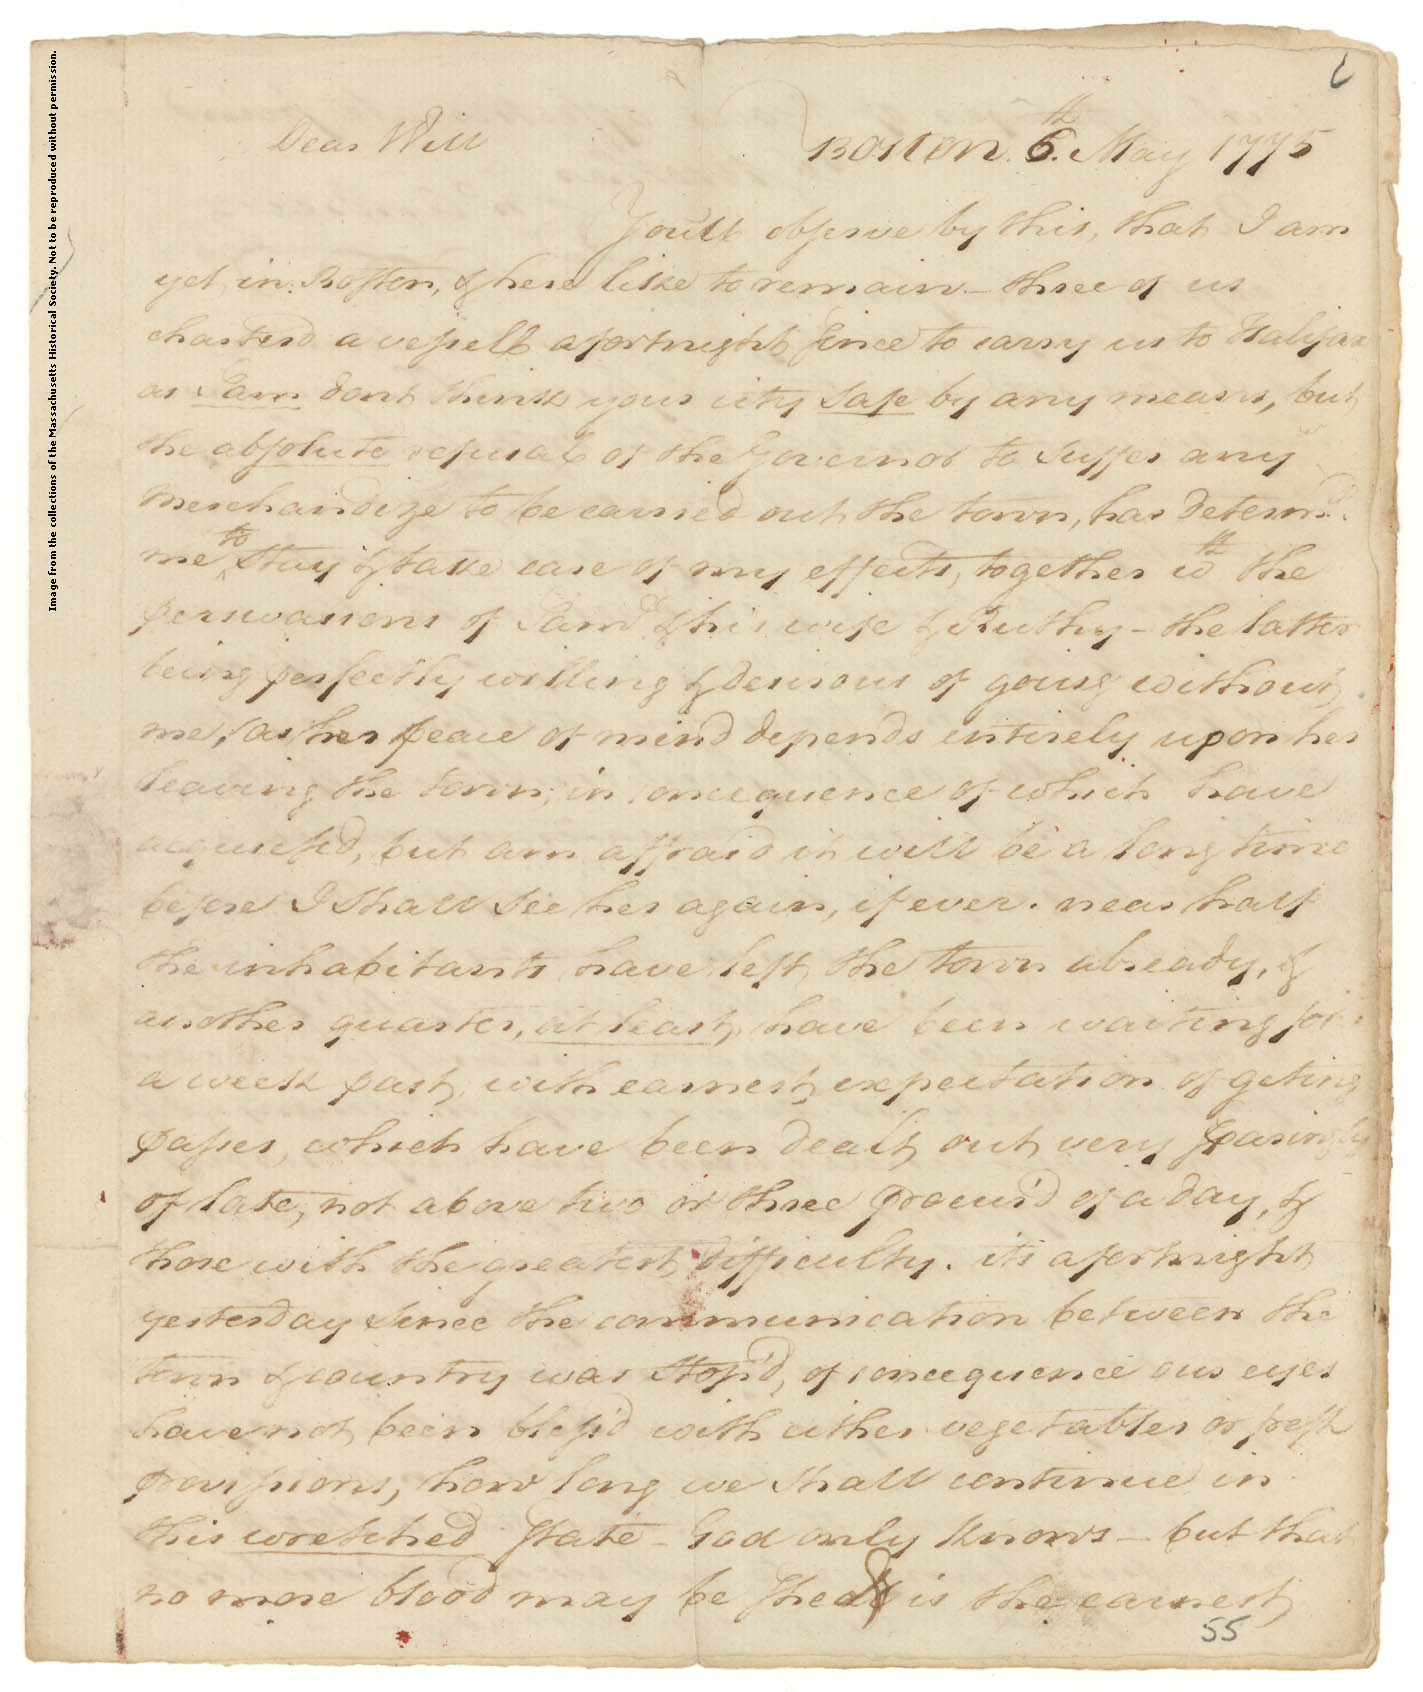 Image from the collections of the Massachusetts Historical Society. Not to be reproduced without permission.
Dear Will
Boston. 6.th May 1775
You'll observe by this, that I am
yet in Boston, & here like to remain - three of us
charterd a vessell a fortnight since to carry us to Halifax
as Sam dont think your city safe by any means, but
the absolute refusal of the Governor to suffer any
Merchandize to be carried out the town, has determd.
me to stay & take care of my effects, together wth the
perswasions of Saml. & his wife & Ruthy - the latter
being perfectly willing & desirous of going without
me, as her peace of mind depends entirely upon her
leaving the town; in concequence of which have
acquiesd, but am affraid it will be a long time
before I shall see her again, if ever. near half
the inhabitants have left the town already, &
another quarter, at least, have been waiting for
a week past with earnest expectation of geting
passes, which have been dealt out very sparingly
of late, not above two or three procur'd of a day, &
those with the greatest difficulty. its a fortnight
yesterday since the communication between the
town & country was stop'd, of concequence our eyes
have not been bless'd with either vegetables or fresh
provissions, how long we shall continue in
this wretched State - God only knows - but that
no more blood may be shed is the earnest
55